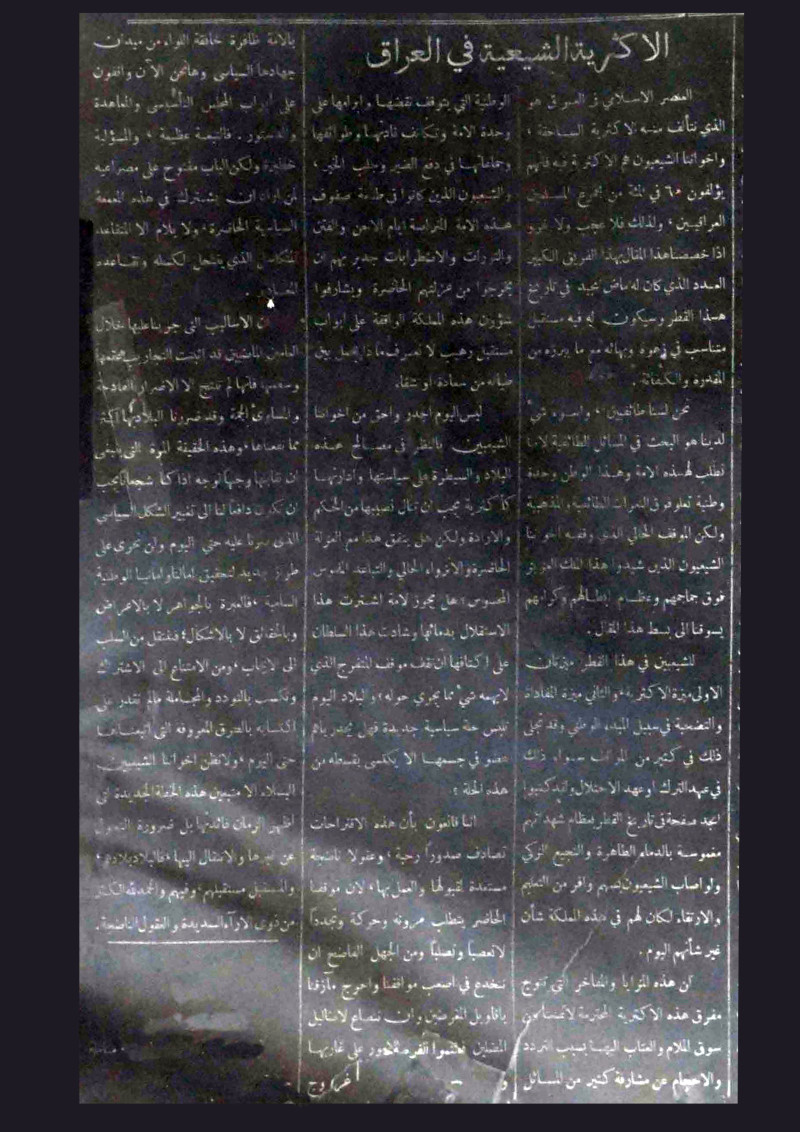 الاكثرية الشيعية في العراق
العنصر الاسلامي في العراق هو
الذي تتألف منه الاكثرية الساحقة ،
واخواننا الشيعيون هم الاكثرية فيه فانهم
يؤلفون ٦٠ في المئة من مجموع المسلمين
العراقيين ، ولذلك فلا عجب ولا غرو
اذا خصصنا هذا المقال بهذا الفريق الكبير
العدد الذي كان له ماض مجيد في تاريخ
هسذا القطر وسيكون له فيه مستقبل
متناسب في زهوه وبهائه مع ما يبرزه من
المقدرة والكفاءة .
نحن لسنا طائفيين ، واسوء شيء
لدينا هو البحث في المسائل الطائفية لاننا
نطلب لهسذه الامة وهسذا الوطن وحدة
وطنية تعلو فوق النعرات الطائفية والمذهبية
ولكن الموقف الحالي الذي وقفه اخواننا
الشيعيون الذين شيدوا هذا الملك العزيز
فوق جماجمهم وعظام ابطالهم وكرامهم
يسوقنا الى بسط هذا المقال .
للشيعيين في هذا القطر ميزتان
الاولى ميزة الاكثرية ، والثاني ميزة المفاداة
والتضحية في سبيل المبدء الوطني وقد تجلى
ذلك في كثير من المواقف سواء ذلك
في عهد الترك او عهد الاحتلال وقد كتبوا
امجد صفحة في تاريخ القطر بعظام شهدائهم
مغموسة بالدماء الطاهرة والنجيع الزكي
ولو اصاب الشيعيون نصيبهم وافر من التعليم
والارتقاء لكان لهم في هذه المملكة شأن
غير شأنهم اليوم .
ان هذه المزايا والمفاخر التي تتوج
مفرق هذه الاكثرية المحترمة لا تمنعنا من
سوق الملام والعتاب اليهسا بسبب التردد
والاحجام عن مشارفة كثير من المسائل
الوطنية التي يتوقف نقضهسا وابرامها على
وحدة الامة وتكاتف قادتهسا وطوائفها
وجماعاتهسا في دفع الضير وجلب الخير ،
والشيعيون الذين كانوا في طليعة صفوف
هسذه الامة للحراسة ايام الامن والفتن
والثورات والاضطرابات جدير بهم ان
يخرجوا من عزلتهم الحاضرة ويشارفوا
شؤون هذه المملكة الواقفة على ابواب
مستقبل رهيب لا تعرف ماذا يحمل بين
طياته من سعادة او شقاء
ليس اليوم اجدر واحق من اخواننا
الشيعيين بالنظر في مصسالح هسذه
البلاد والسيطرة على سياستها وادارتهسا
كأكثرية يجب ان تنال نصيبها من الحكم
والادارة ولكن هل يتفق هذا مع العزلة
الحاضرة والانزواء الحالي والتباعد
المحسوس ، هل يجوز لامة اشترت هذا
الاستقلال بدمائها وشادت هذا السلطان
على اكتافها ان تقف موقف المتفرج الذي
لا يهمه شيء مما يجري حوله ، والبلاد اليوم
تلبس حلة سياسية جديدة فهل يجدر باهم
عضو في جسمهسا الا يكتسى بقسطه من
هذه الحلة ؟
اننا قانعون بأن هذه الاقتراحات
تصادف صدوراً رحبة ، وعقولا ناضجة
مستعدة لقبولها والعمل بها ، لان موقفنا
الحاضر يتطلب مرونة وحركة وتجدداً
لا تعصباً وتصلباً ومن الجهل الفاضح ان
ننخدع في اصعب مواقفنا واحرج مآزقنا
باقاويل المغرضين وان ننصاع لاضاليل
المضلين فاغتنموا الفرصة على غاربهسا
بالامة ظافرة خافقة اللواء من ميدان
جهادها السياسي وها نحن الآن واقفون
على ابواب المجلس التأسيسي والمعاهدة
والدستور . فالتبعة عظيمة ، والمسؤلية
خطيرة ولكن الباب مفتوح على مصراعيه
لمن اراد ان يشترك في هذه المعمعة
السياسية الحاضرة ، ولا يلام الا المتقاعد
المتكاسل الذي ينتحل لكسله وتقاعده
ان الاساليب التي جرينا عليها خلال
العامين الماضيين قد اثبتت التجاريب عقمها
وسقمها فانها لم تنتج الا الاضرار الفادحة
والمساوئ الجمة وقد ضررنا البلاد بها اكثر
مما نفعناها ، وهذه الحقيقة المرة التي ينبغي
ان نقابلها وجهاً لوجه اذا كنا شجعانا يجب
ان تكون دافعاً لنا الى تغيير الشكل السياسي
الذي سرنا عليه حتى اليوم وان نجري على
طراز جديد لتحقيق آمالنا وامانينا الوطنية
السامية ، فالعبرة بالجواهر لا بالاعراض
وبالحقائق لا بالاشكال ، فننتقل من السلب
الى الايجاب ، ومن الامتناع الى الاشتراك
ونكسب بالتودد والمجاملة ما لم نقدر على
اكتسابه بالطرق المعروفة التي اتبعنساهسا
حتى اليوم ، ولا نظن اخواننا الشيعيين
النبلاء الا متبعين هذه الخطة الجديدة التي
اظهر الزمان فائدتها بل ضرورة التحول
عن غيرها والانتقال اليها ، فالبلاد بلادهم ،
والمستقبل مستقبلهم ، وفيهم والحمد لله الكثير
من ذوى الآراء السديدة والعقول الناضجة .